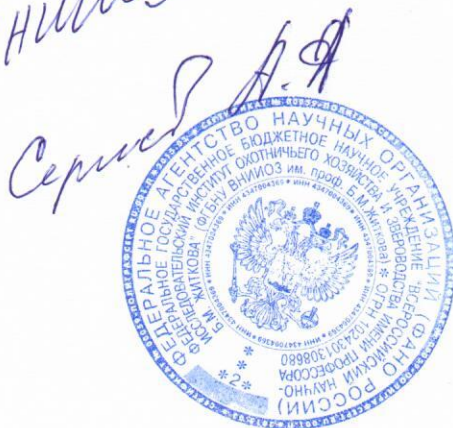 Сергеев А.А
ФЕДЕРАЛЬНОЕ АГЕНТСТВО НАУЧНЫХ ОРГАНИЗАЦИЙ (ФАНО РОССИИ)
ФЕДЕРАЛЬНОЕ ГОСУДАРСТВЕННОЕ БЮДЖЕТНОЕ НАУЧНОЕ УЧРЕЖДЕНИЕ "ВСЕРОССИЙСКИЙ НАУЧНО-
ИССЛЕДОВАТЕЛЬСКИЙ ИНСТИТУТ ОХОТНИЧЬЕГО ХОЗЯЙСТВА И ЗВЕРОВОДСТВА ИМЕНИ ПРОФЕССОРА
Б.М. ЖИТКОВА" (ФГБНУ ВНИИОЗ им. проф. Б.М. Житкова) * ОГРН 1024301308680
* ИНН 4347004369 * ИНН 4347004369
*
*
*2*